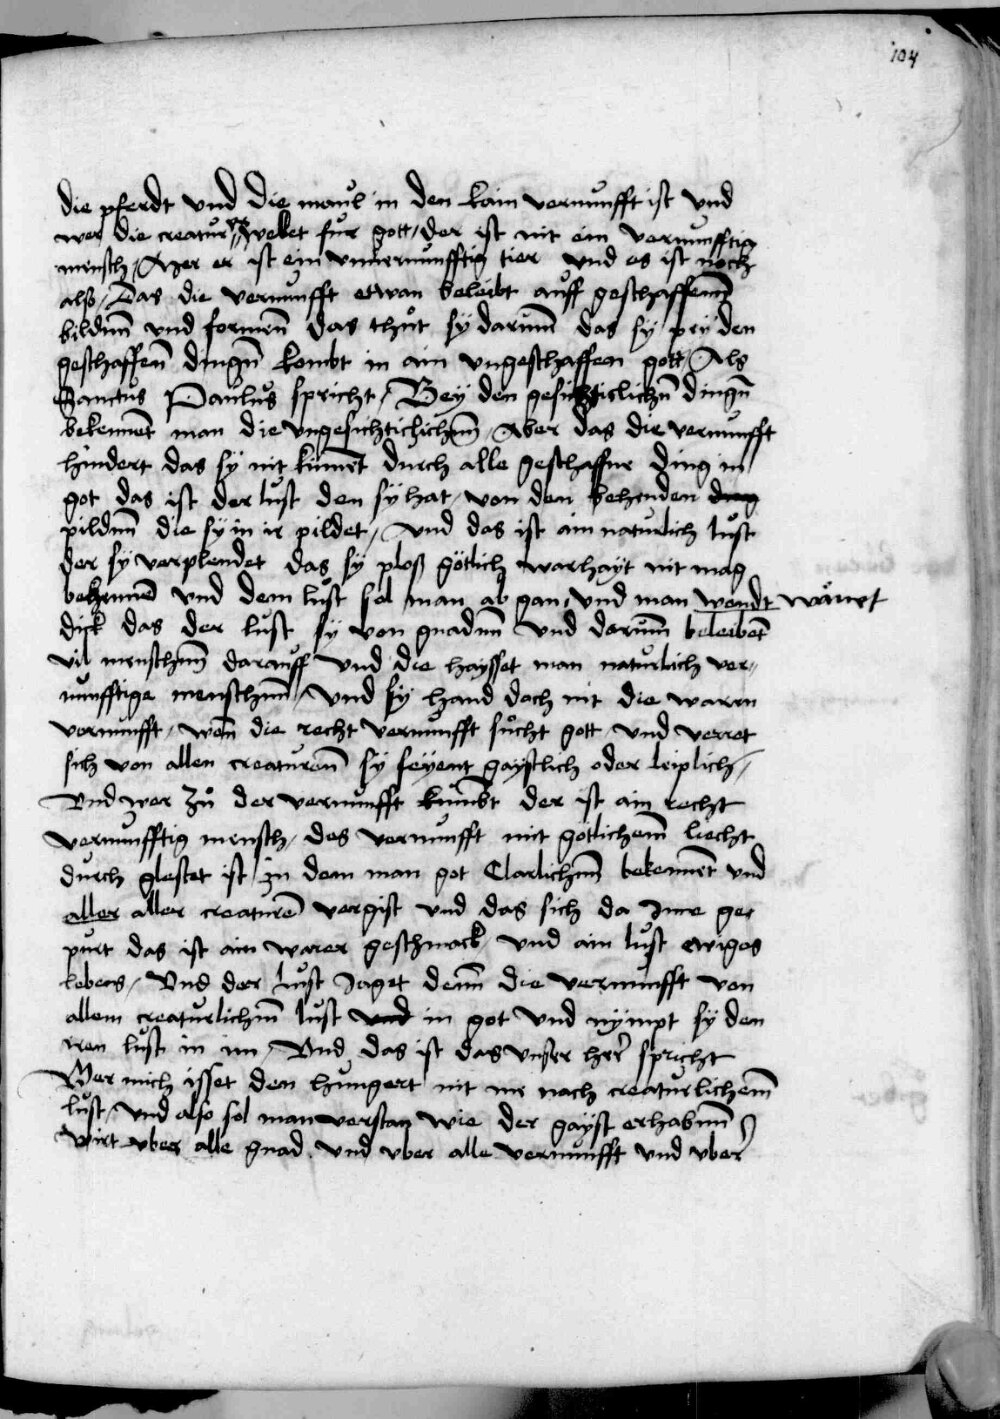 104
die pferdt und die maul in den kain vernunfft ist und
wer die creatur er welet fur gott / der ist nit ein vernunfftig
mensch / Mer er ist ein unvernunfftig tier und es ist noch
also / Das die vernunfft etwan beleibt auff geschaffenn
bildnn und formenn das thut sy darumm das sy pey den
geschaffenn dingn kombt in ain ungeschaffen gott / Als
Sanctus Paulus spricht / Bey den gesichticlichn dingn
bekennet man die ungesichticlichenn / Aber das die vernunfft
hindert das sy nit kumet durch alle geschaffne ding in
got das ist der lust den sy hat / von den behenden ding
pildnn die sy in ir pildet / Und das ist ain naturlich lust
der sy verplendet das sy ploß götlich warhayt nit mag
bekennen und dem lust sol man ab gan / und man wendt wänet
dick das der lust sy von gnadnn und darumm beleibet
vil menschnn darauff und die haysset man naturlich ver„
nunfftige menschnn / Und sy hand doch nit die waren
vernunfft / wen die recht vernunfft sucht gott und verret
sich von allen creaturenn sy seyent gaystlich oder leiplich /
Und wer zu der vernunfft kumbt der ist ain recht
vernunfftig mensch / des vernunfft mit gotlichem liecht
durch glestet ist / in dem man got Clarlichnn bekennet und
aller aller creaturen vergist und das sich da Inne ge„
purt das ist ain warer geschmack / und ain lust ewiges
lebens / Und der lust Jaget denn die vernunfft von
allem creaturlichnn lust und in got und nympt sy den
iren lust in im / Und das ist das unser herr spricht
Wer mich isset den hungert nit me nach creaturlichem
lust / und also sol man verstan wie der gayst erhabnn
wirt uber alle gnad und uber alle vernunfft und uber